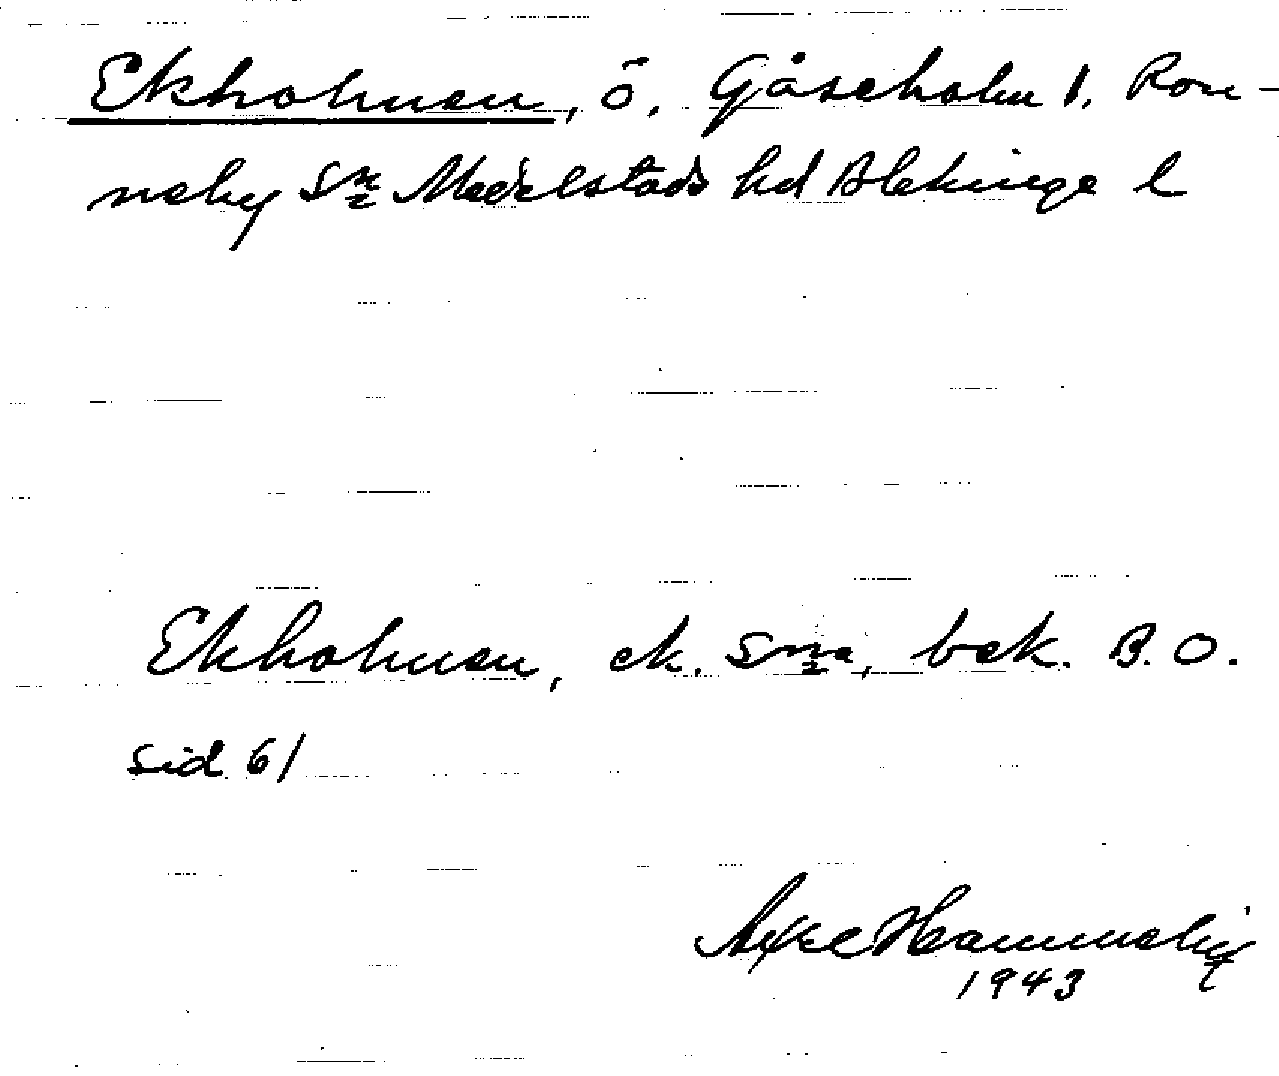 Ekholmen, ö, Gåseholm 1. Ron-
neby sn Medelstads hd Blekinge l
Ekholmen, ek. sma, bek. B.O.
sid 61
Axel
1943